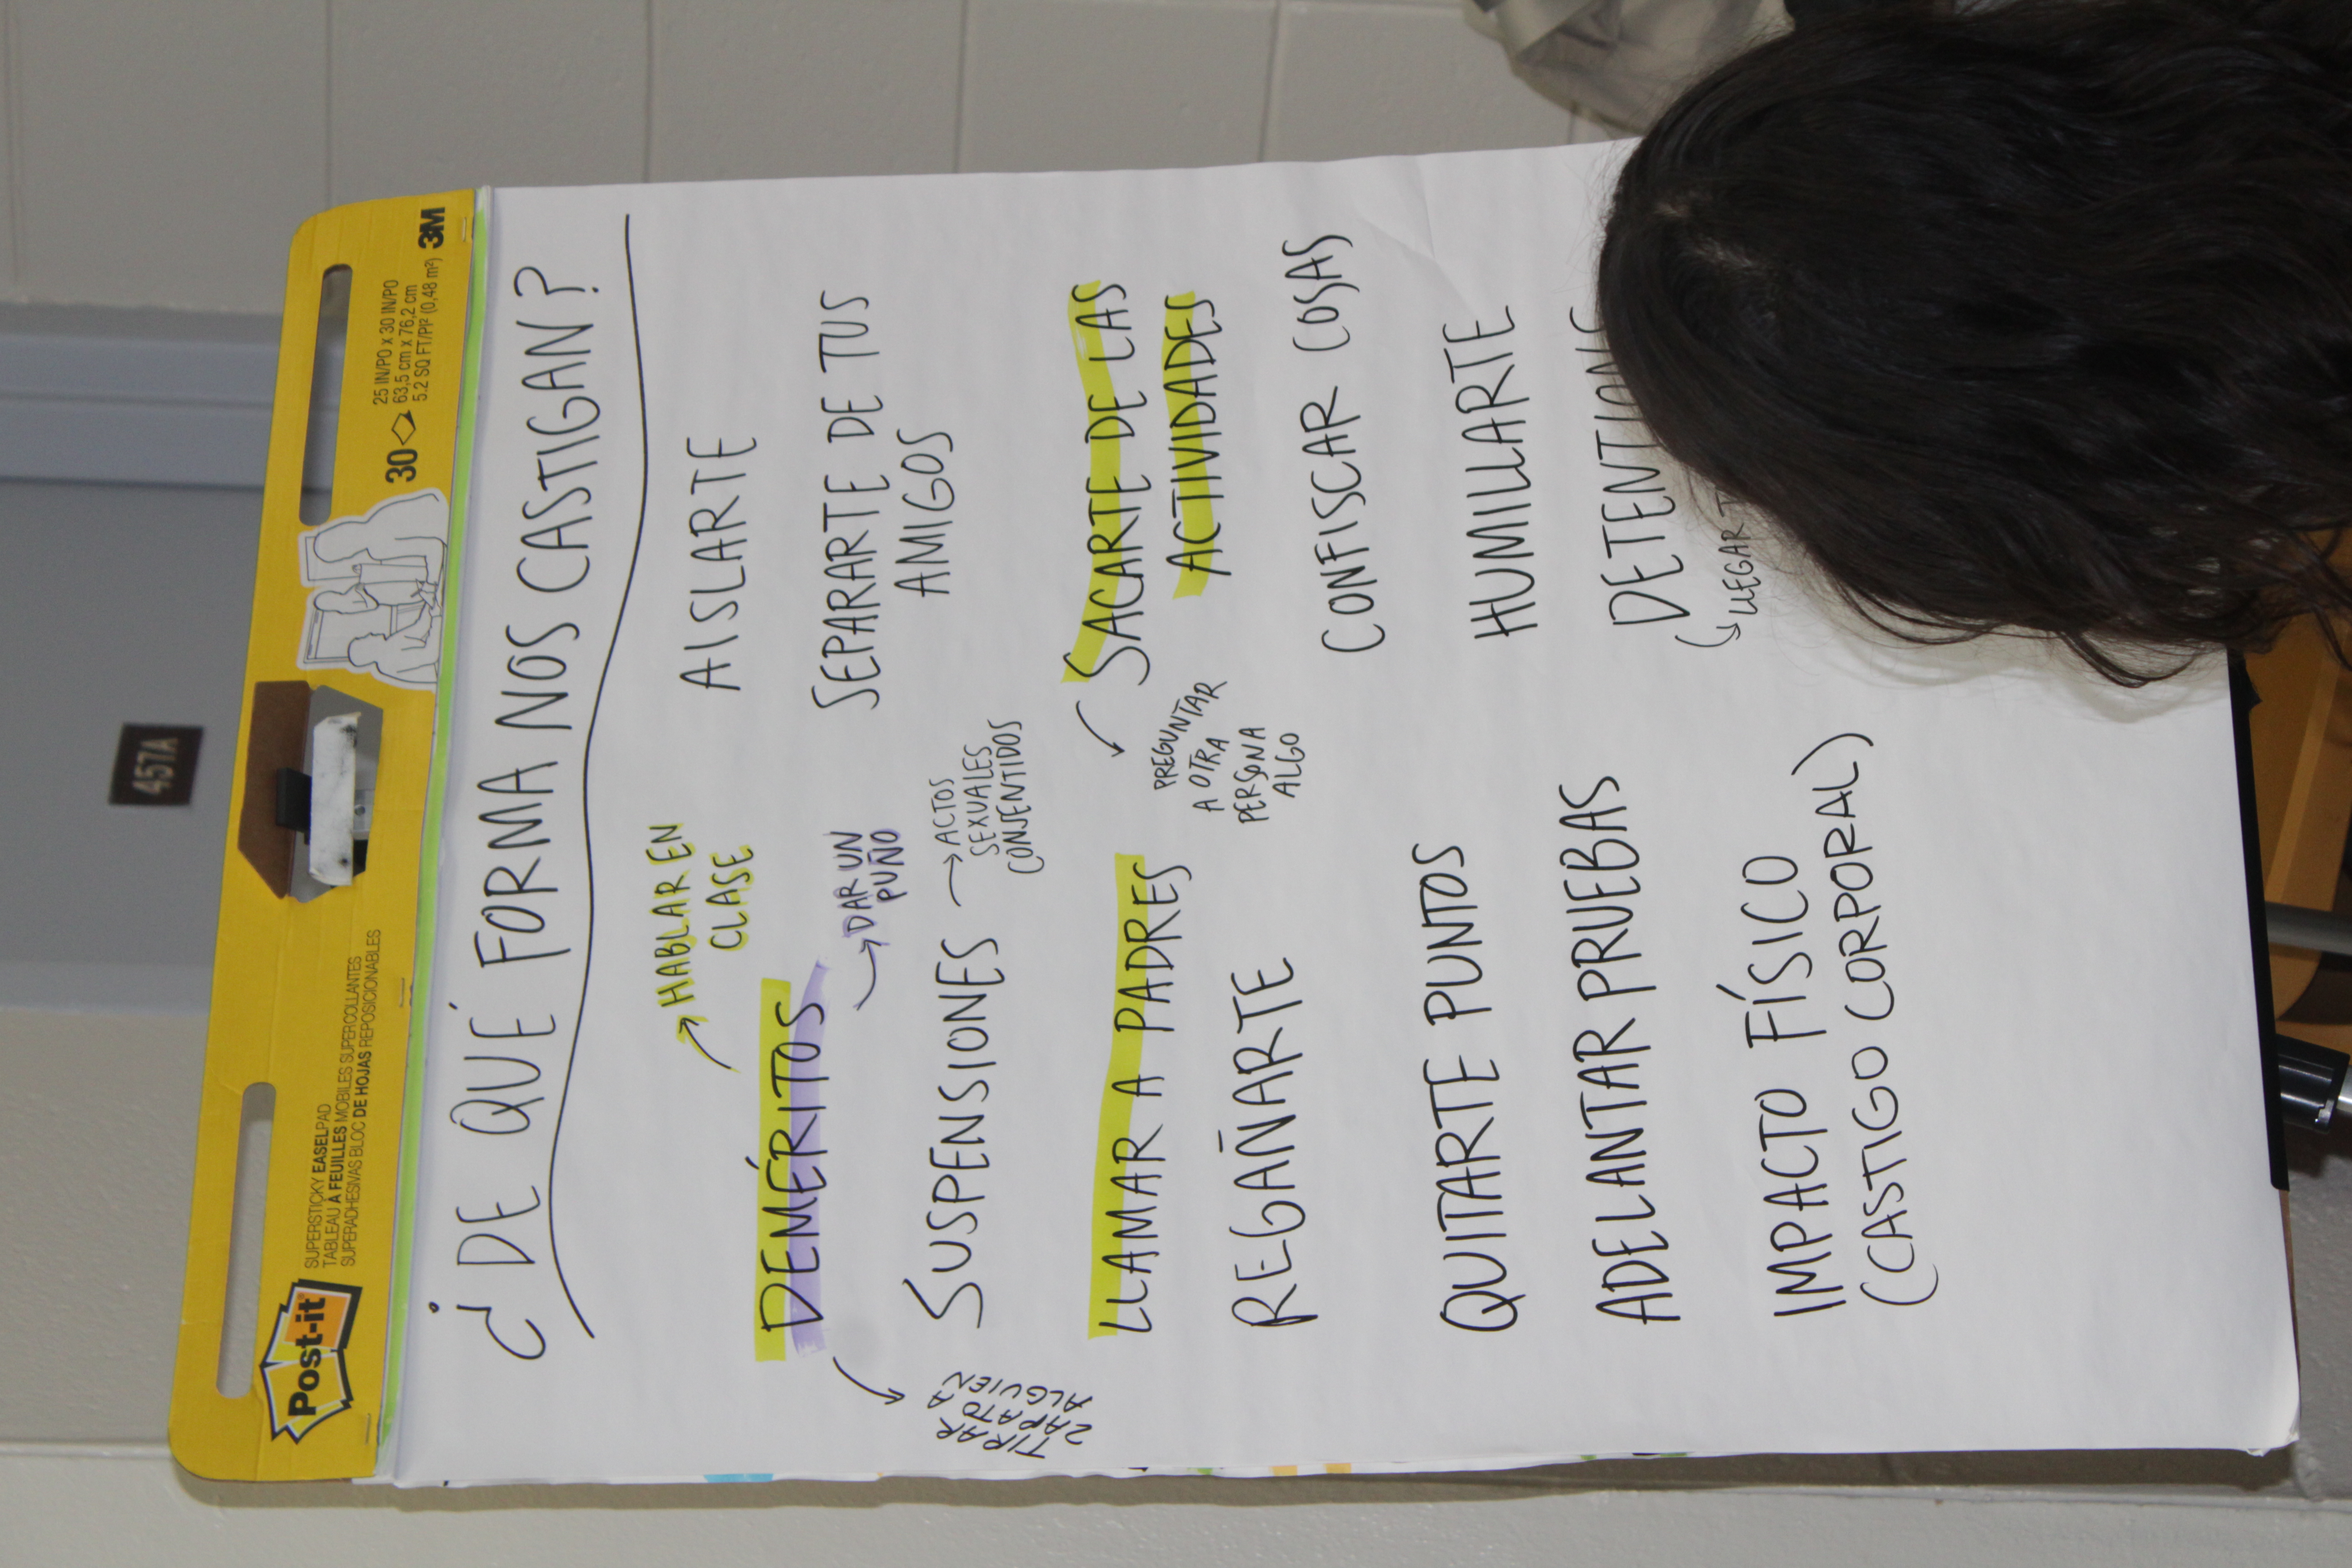 457A
Post-it
SUPERSTICKY EASELPAD
TABLEAU À FEUILLES MOBILES SUPERCOLLANTES
SUPERADHESIVAS BLOC DE HOJAS REPOSICIONABLES
30
25 IN/PO x 30 IN/PO
63,5 cm x 76,2 cm
5.2 SQ FT/PI² (0,48 m²)
3M
¿DE QUÉ FORMA NOS CASTIGAN?
→ HABLAR EN
CLASE
DEMÉRITOS
→ DAR UN
PUÑO
TIRAR
ZAPATO A
ALGUIEN
SUSPENSIONES
→ ACTOS
SEXUALES
CONSENTIDOS
LLAMAR A PADRES
REGAÑARTE
QUITARTE PUNTOS
ADELANTAR PRUEBAS
IMPACTO FÍSICO
(CASTIGO CORPORAL)
AISLARTE
SEPARARTE DE TUS
AMIGOS
SACARTE DE LAS
ACTIVIDADES
PREGUNTAR
A OTRA
PERSONA
ALGO
CONFISCAR COSAS
HUMILLARTE
DETENTIONS
↳ LLEGAR